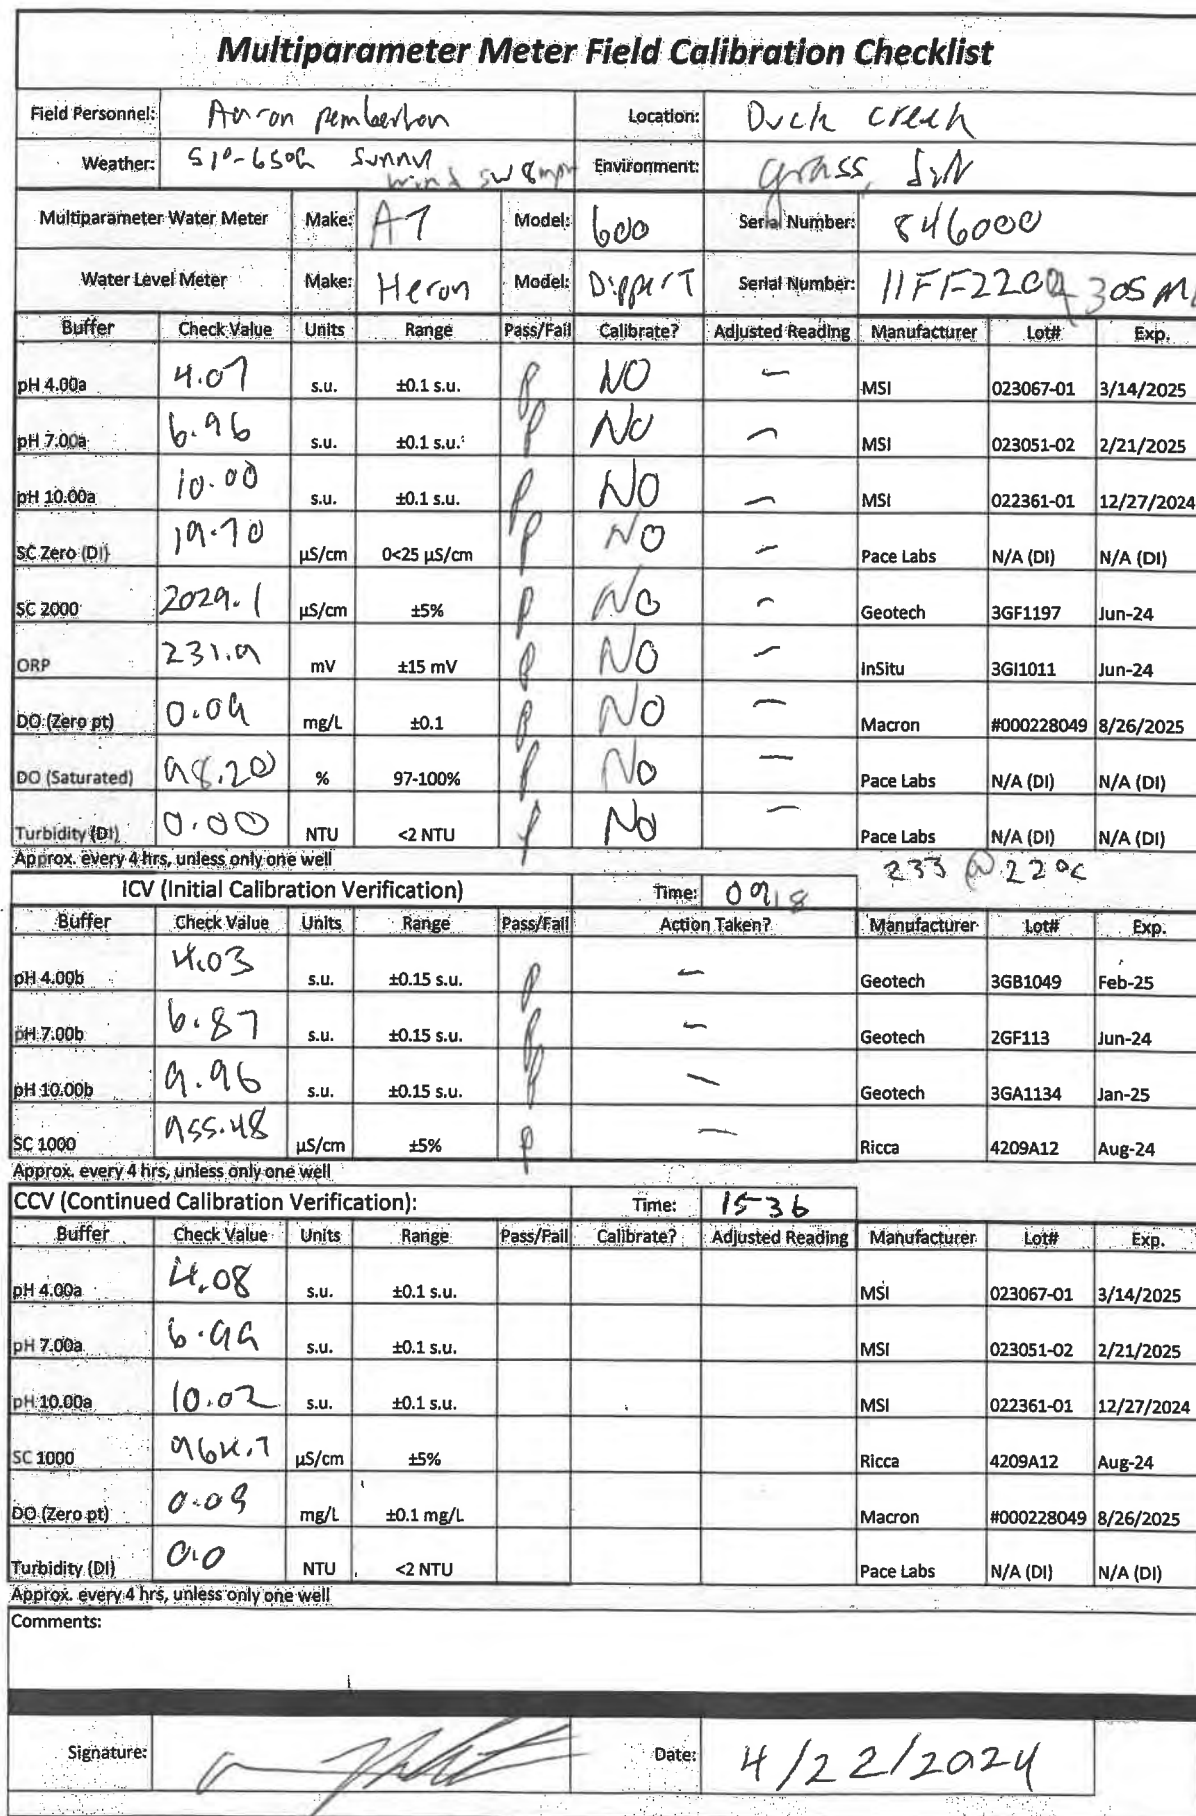 Multiparameter Meter Field Calibration Checklist
Field Personnel: Aaron pemberton Location: Duck creek
Weather: 51°-65°F Sunny wind SW 8mph Environment: grass,
Multiparameter Water Meter Make: AT Model: 600 Serial Number: 846000
Water Level Meter Make: Heron Model: DipperT Serial Number: 11FF2209
Buffer Check Value Units Range Pass/Fail Calibrate? Adjusted Reading Manufacturer Lot# Exp.
pH 4.00a 4.07 s.u. ±0.1 s.u. P NO — MSI 023067-01 3/14/2025
pH 7.00a 6.96 s.u. ±0.1 s.u. P No — MSI 023051-02 2/21/2025
pH 10.00a 10.00 s.u. ±0.1 s.u. P NO — MSI 022361-01 12/27/2024
SC Zero (DI) 19.70 µS/cm 0<25 µS/cm P NO — Pace Labs N/A (DI) N/A (DI)
SC 2000 2029.1 µS/cm ±5% P NO — Geotech 3GF1197 Jun-24
ORP 231.9 mV ±15 mV P NO — InSitu 3GI1011 Jun-24
DO (Zero pt) 0.09 mg/L ±0.1 P NO — Macron #000228049 8/26/2025
DO (Saturated) 98.20 % 97-100% P No — Pace Labs N/A (DI) N/A (DI)
Turbidity (DI) 0.00 NTU <2 NTU P No — Pace Labs N/A (DI) N/A (DI)
Approx. every 4 hrs, unless only one well 233 @ 22°C
ICV (Initial Calibration Verification) Time: 0918
Buffer Check Value Units Range Pass/Fail Action Taken? Manufacturer Lot# Exp.
pH 4.00b 4.03 s.u. ±0.15 s.u. P — Geotech 3GB1049 Feb-25
pH 7.00b 6.87 s.u. ±0.15 s.u. P — Geotech 2GF113 Jun-24
pH 10.00b 9.96 s.u. ±0.15 s.u. P — Geotech 3GA1134 Jan-25
SC 1000 955.48 µS/cm ±5% P — Ricca 4209A12 Aug-24
Approx. every 4 hrs, unless only one well
CCV (Continued Calibration Verification): Time: 1536
Buffer Check Value Units Range Pass/Fail Calibrate? Adjusted Reading Manufacturer Lot# Exp.
pH 4.00a 4.08 s.u. ±0.1 s.u. MSI 023067-01 3/14/2025
pH 7.00a 6.99 s.u. ±0.1 s.u. MSI 023051-02 2/21/2025
pH 10.00a 10.02 s.u. ±0.1 s.u. MSI 022361-01 12/27/2024
SC 1000 964.7 µS/cm ±5% Ricca 4209A12 Aug-24
DO (Zero pt) 0.09 mg/L ±0.1 mg/L Macron #000228049 8/26/2025
Turbidity (DI) 0.0 NTU <2 NTU Pace Labs N/A (DI) N/A (DI)
Approx. every 4 hrs, unless only one well
Comments:
Signature: Date: 4/22/2024